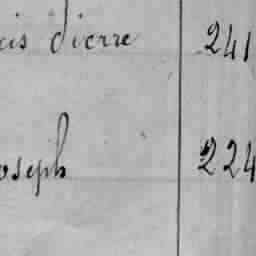 cis Pierre 241
oseph 224